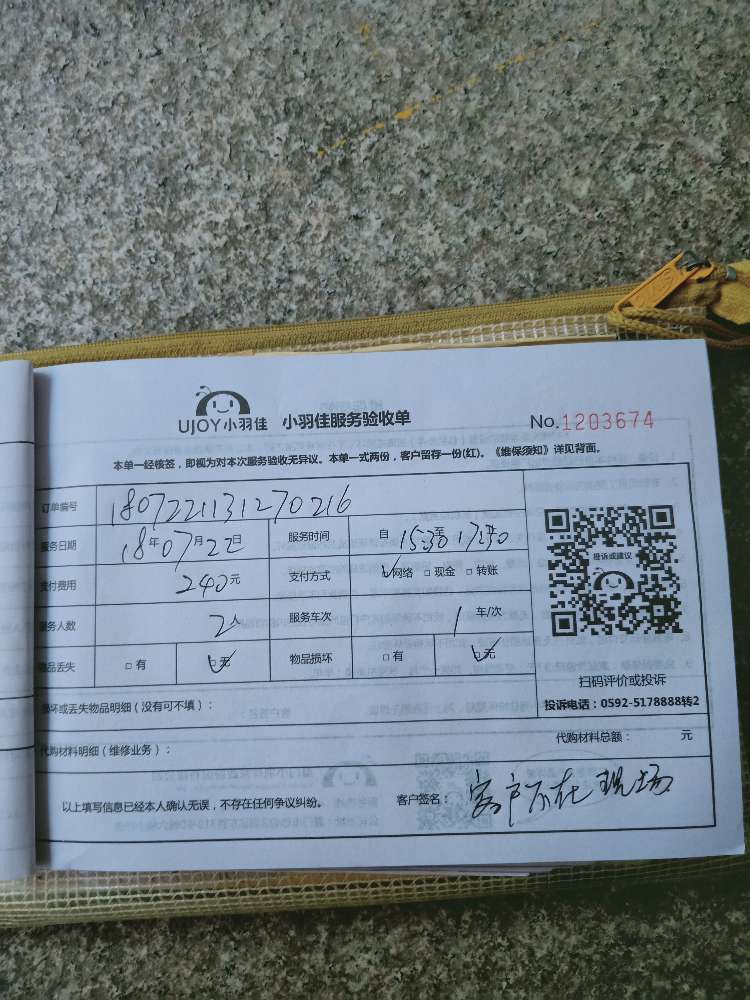 UJOY小羽佳 小羽佳服务验收单 No.1203674
本单一经核签,即视为对本次服务验收无异议。本单一式两份,客户留存一份(红)。《维保须知》详见背面。
订单编号 1807221131270216
服务日期 18年07月22日 服务时间 自15:30至17:30
支付费用 240元 支付方式 网络 □现金 □转账
服务人数 2人 服务车次 1车/次
物品丢失 □有 □无 物品损坏 □有 □无
投诉或建议
扫码评价或投诉
投诉电话:0592-5178888转2
损坏或丢失物品明细(没有可不填):
代购材料明细(维修业务): 代购材料总额: 元
以上填写信息已经本人确认无误,不存在任何争议纠纷。 客户签名:客户不在现场